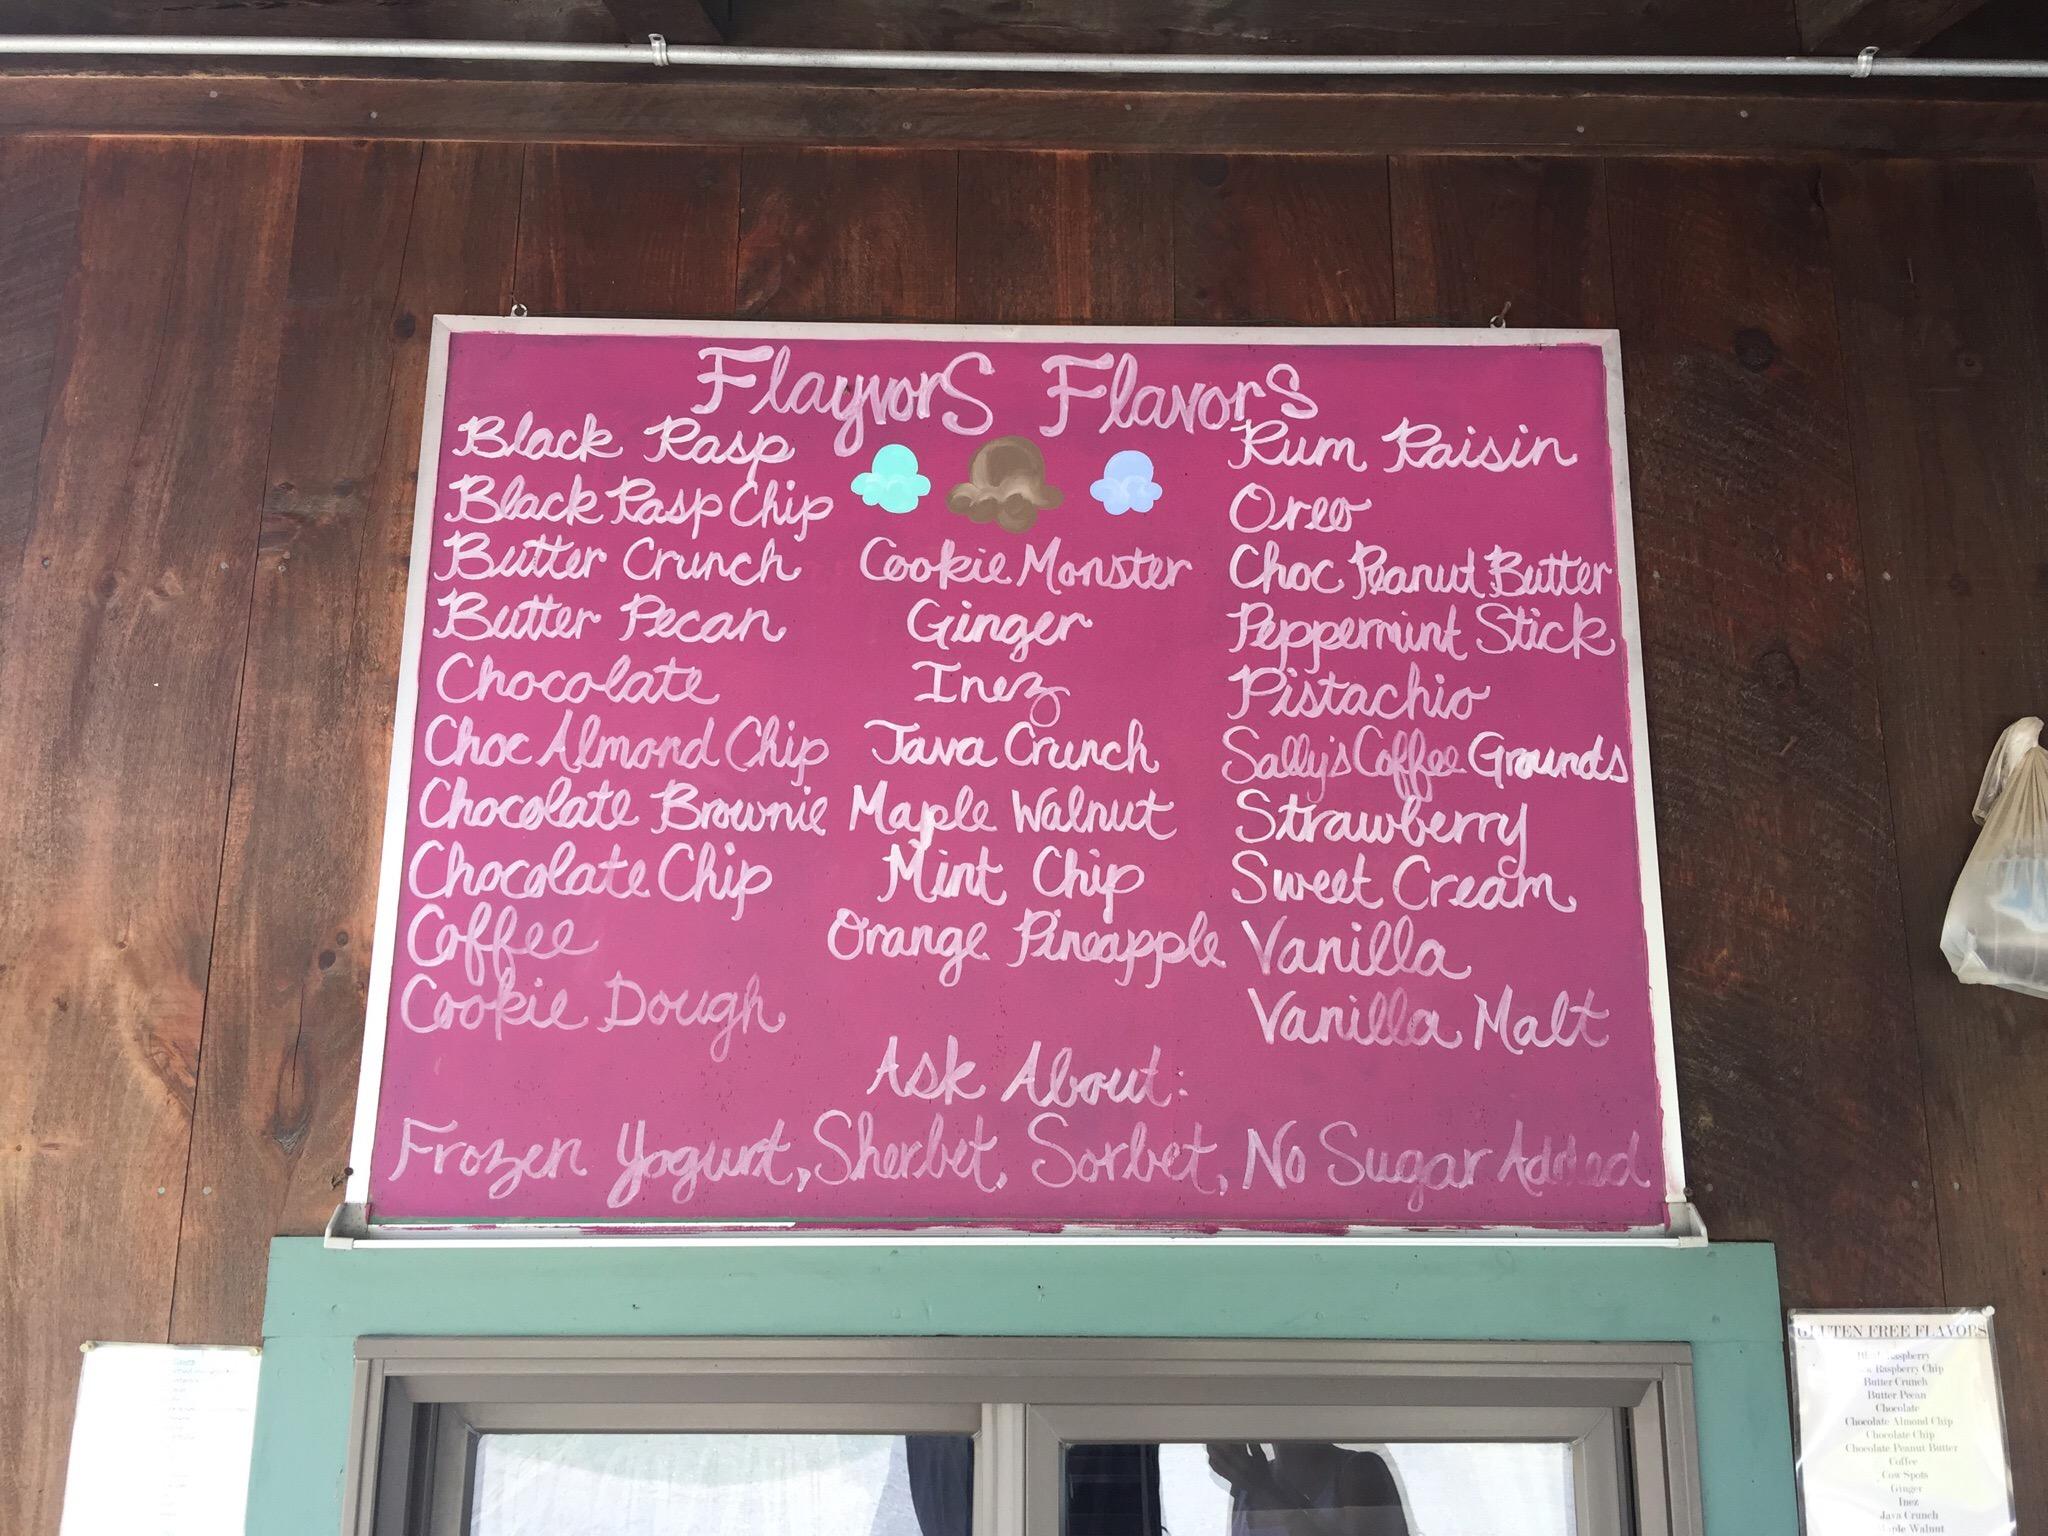 Flayvors Flavors
Black Rasp
Black Rasp Chip
Butter Crunch
Butter Pecan
Chocolate
Choc Almond Chip
Chocolate Brownie
Chocolate Chip
Coffee
Cookie Dough
Cookie Monster
Ginger
Inez
Java Crunch
Maple Walnut
Mint Chip
Orange Pineapple
Rum Raisin
Oreo
Choc Peanut Butter
Peppermint Stick
Pistachio
Sally's Coffee Grounds
Strawberry
Sweet Cream
Vanilla
Vanilla Malt
Ask About:
Frozen Yogurt, Sherbet, Sorbet, No Sugar Added
GLUTEN FREE FLAVORS
Raspberry Chip
Butter Crunch
Butter Pecan
Chocolate
Chocolate Almond Chip
Chocolate Chip
Chocolate Peanut Butter
Coffee
Cow Spots
Ginger
Inez
Java Crunch
Walnut